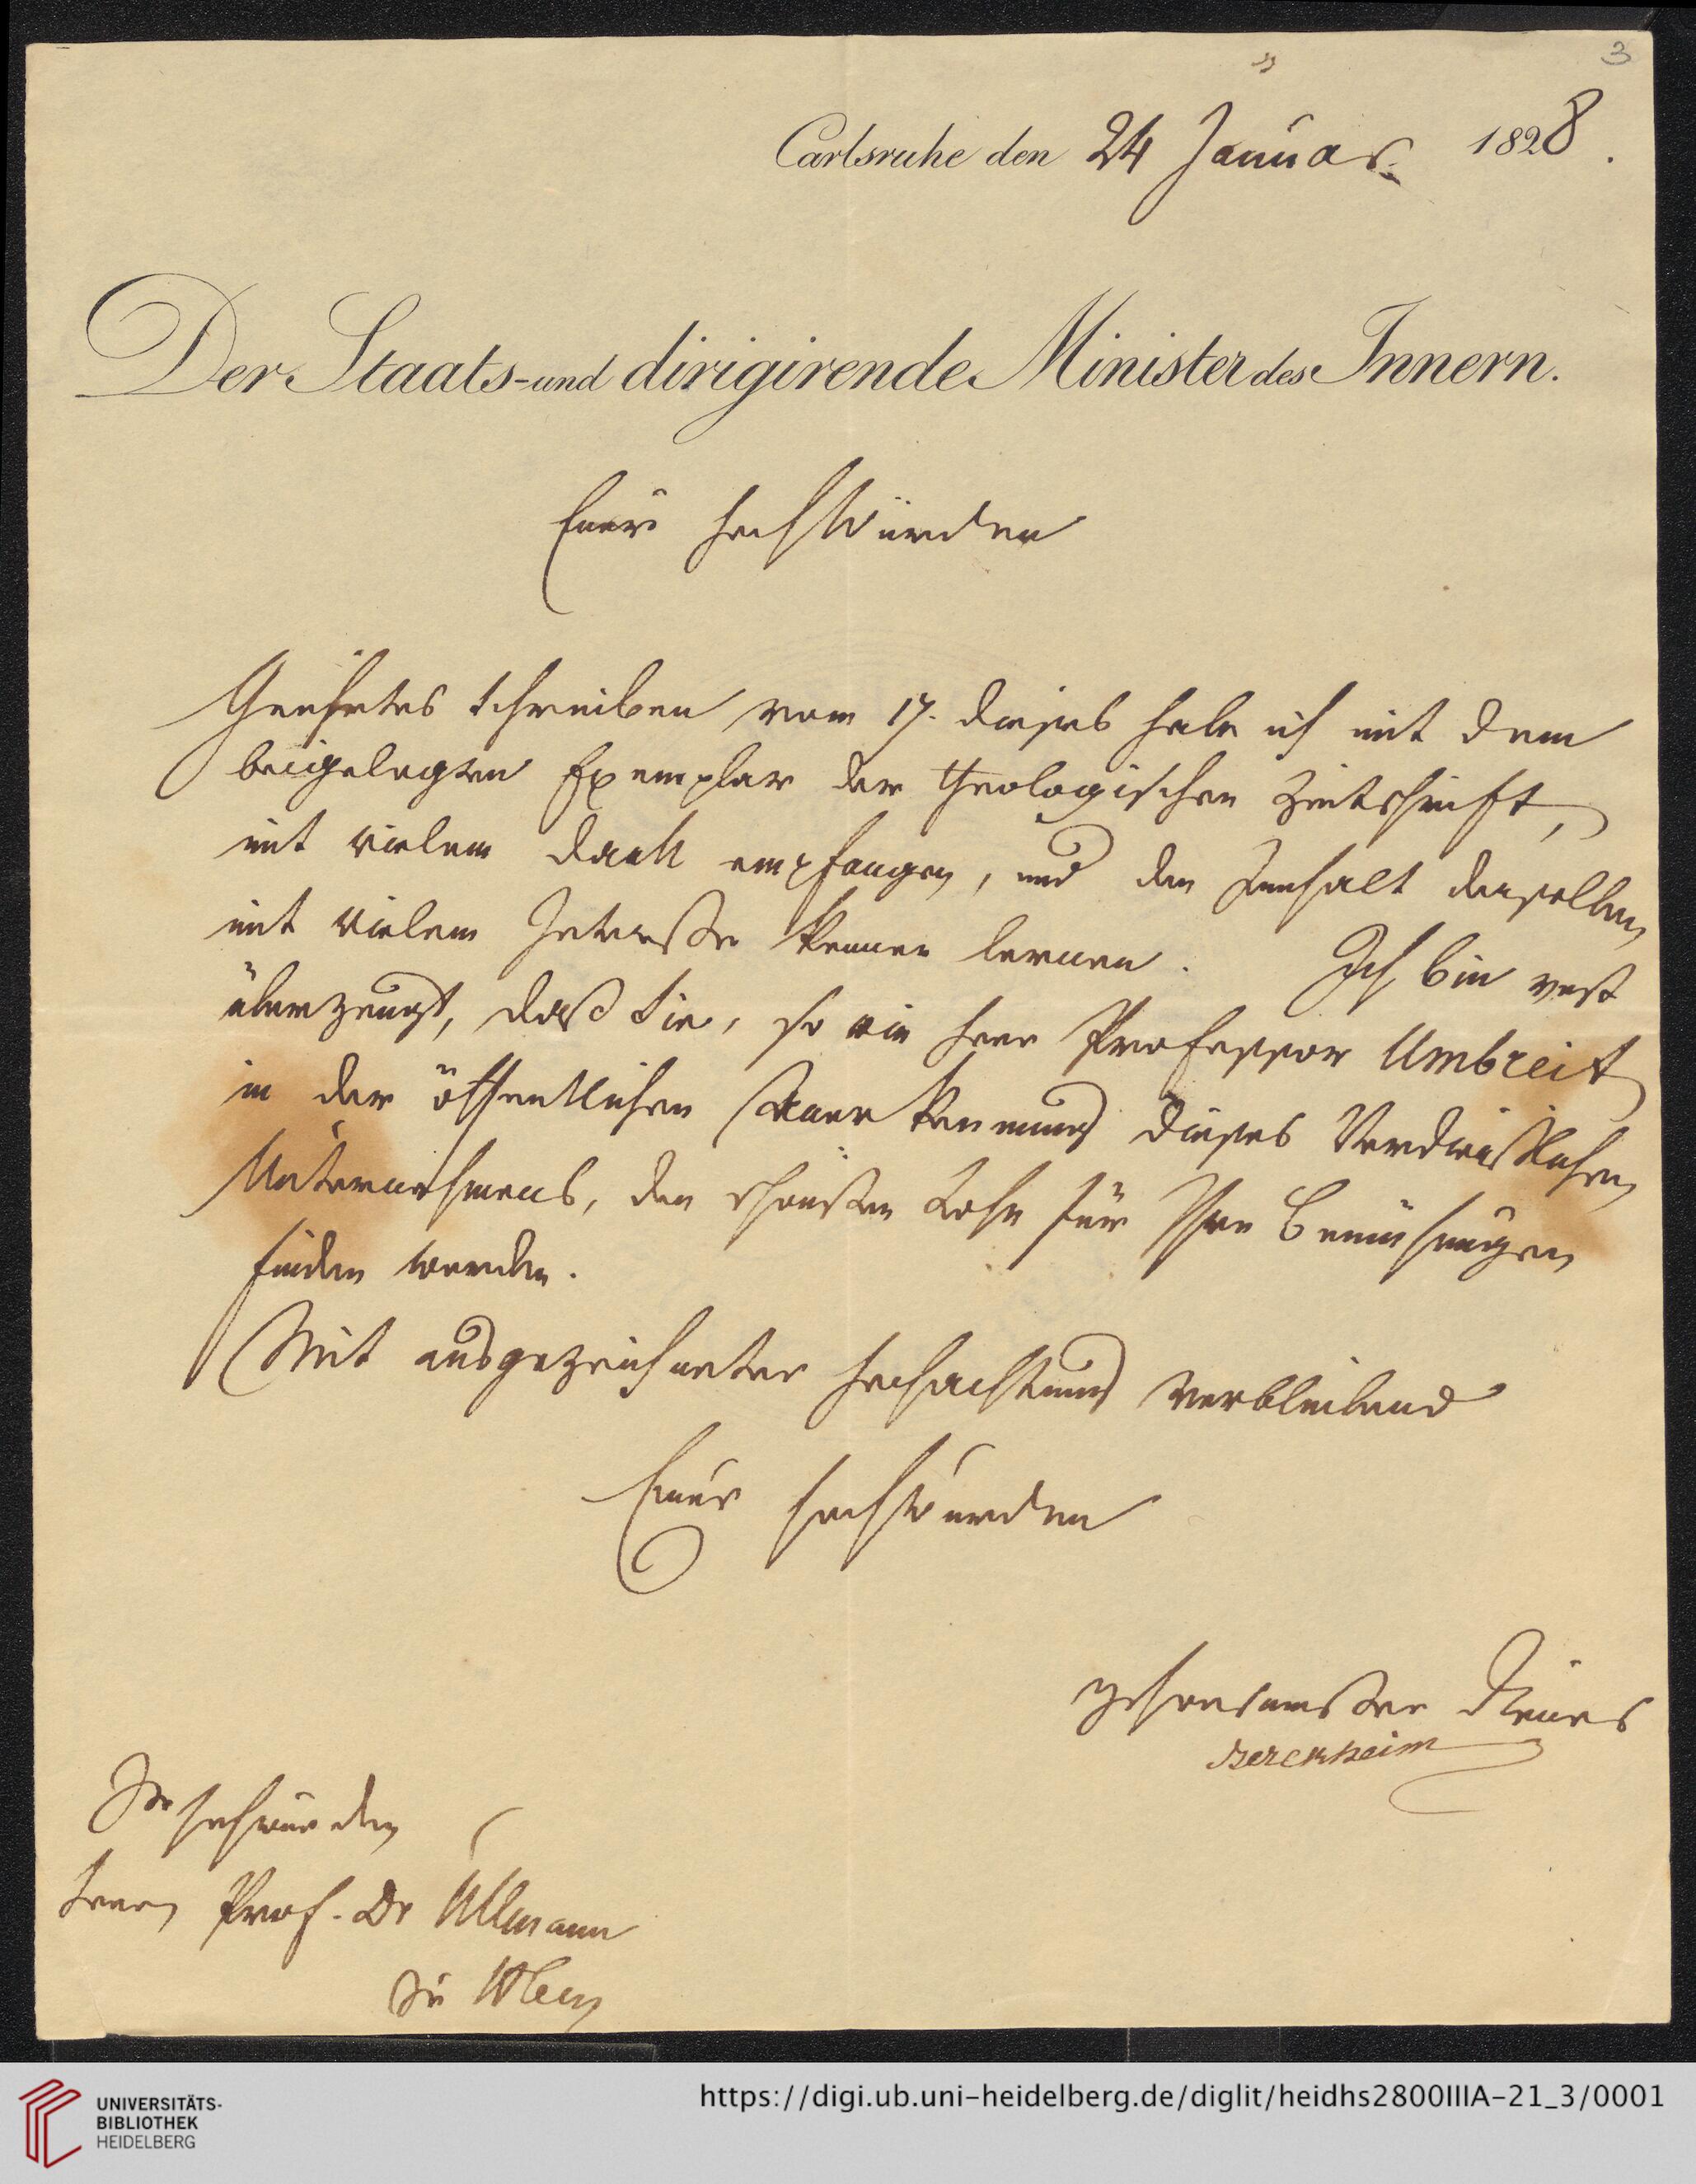 3
Carlsruhe den 24 Januar 1828.
Der Staats- und dirigirende Minister des Innern.
Euer HochWürden
Geehrtes Schreiben vom 17. dieses habe ich mit dem
beigelegten Exemplar der theologischen Zeitschrift,
mit vielem Dank empfangen, und den Innhalt derselben
mit vielem Intereße kennen lernen. Ich bin vest
überzeugt, daß Sie, so wie Herr Professor Umbreit
in der öffentlichen Anerkennung dieses Verdienstlichen
Unternehmens, den schönsten Lohn für Ihre Bemühungen
finden werden.
Mit ausgezeichneter Hochachtung verbleibend
Euer Hochwürden
gehorsamster Diener
Berckheim
Sr Hochwürden
Herrn Prof. Dr Ullmann
UNIVERSITÄTS-
BIBLIOTHEK
HEIDELBERG
https://digi.ub.uni-heidelberg.de/diglit/heidhs2800IIIA-21_3/0001